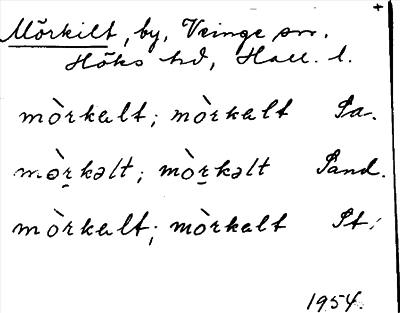 +
Mörkilt, by, Veinge sn.
Höks hd, Hall. l.
mòrkalt; mòrkalt Sa.
mòṟkalt; mòṟkalt Sand.
mòrkalt; mòrkalt St.
1954.